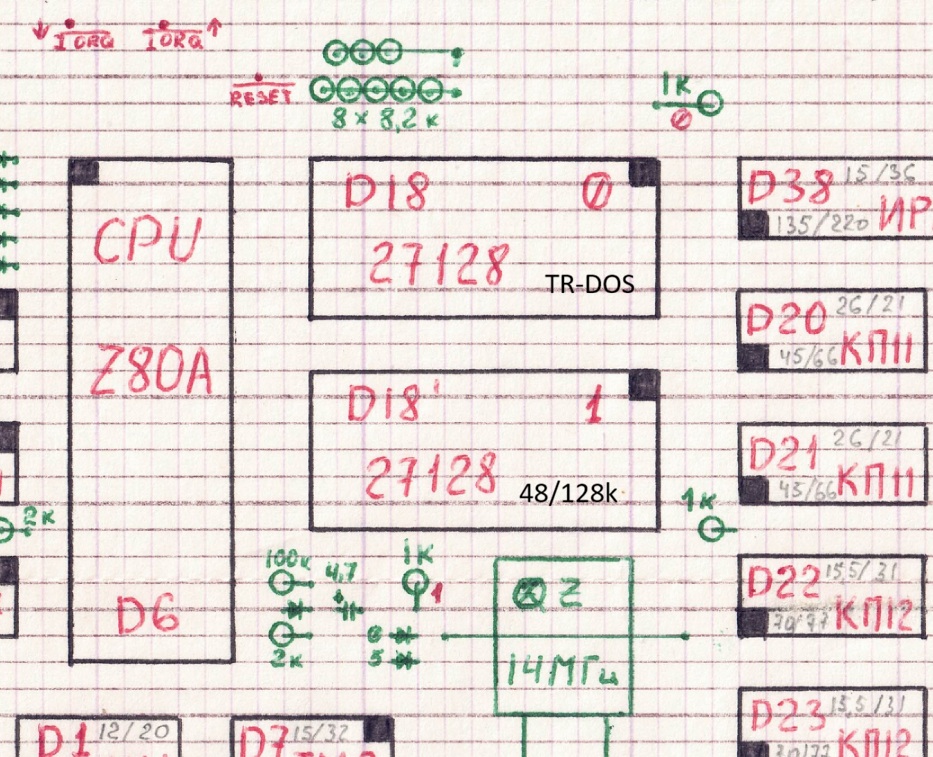 ↓ IORQ IORQ ↑
RESET
8 x 8,2 к
1к
0
CPU
Z80A
D6
D18 0
27128
TR-DOS
D18' 1
27128
48/128k
D38 15/36
135/220 ИР
D20 26/21
45/66 КП11
D21 26/21
45/66 КП11
1к
D22 15,5/31
70/77 КП12
D23 15,5/31
КП12
2к
100к
4,7
1к
1
2к
6
5
Z
14МГц
D1 12/20
D7 15/32